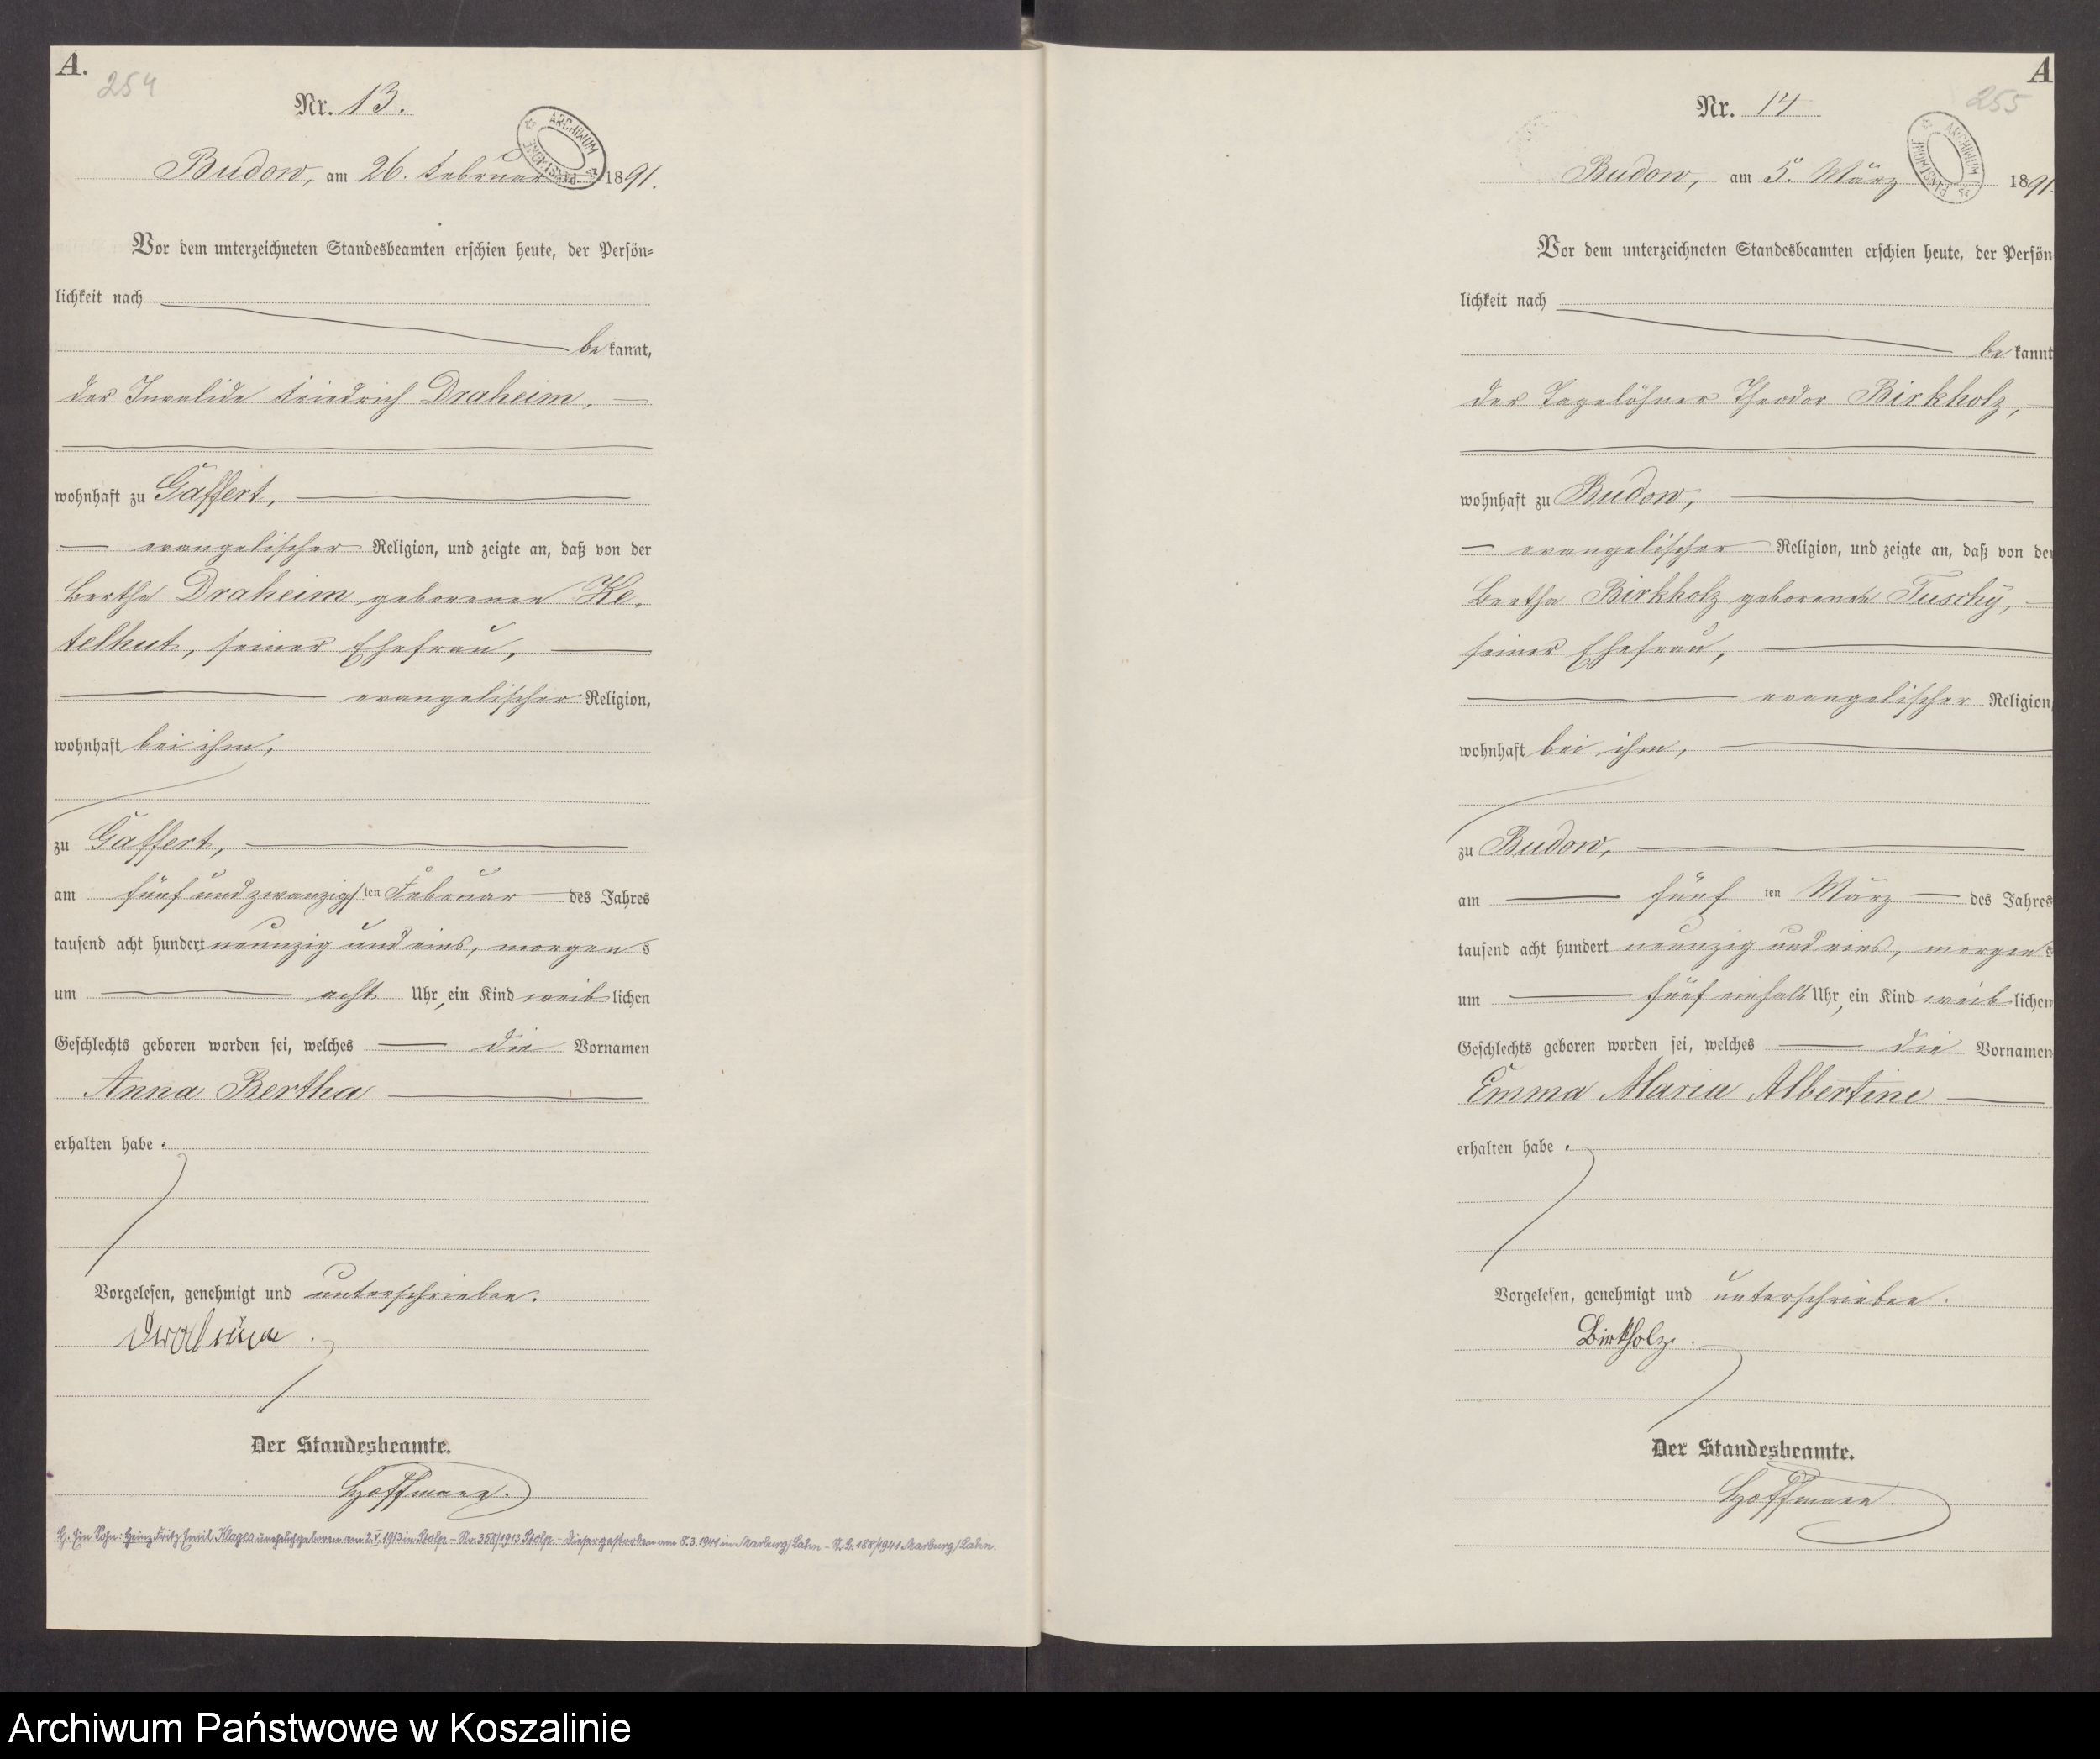 A.
254
Nr. 13.
ARCHIWUM PAŃSTWOWE
Budow, am 26. Februar 1891.
Vor dem unterzeichneten Standesbeamten erschien heute, der Persön-
lichkeit nach
be kannt,
der Invalide Friedrich Draheim,
wohnhaft zu Gaffert,
evangelischer Religion, und zeigte an, daß von der
Bertha Draheim geborenen Ke-
telhut, seiner Ehefrau,
evangelischer Religion,
wohnhaft bei ihm,
zu Gaffert,
am fünf und zwanzigs ten Februar des Jahres
tausend acht hundert neunzig und eins, morgen s
um acht Uhr, ein Kind weib lichen
Geschlechts geboren worden sei, welches die Vornamen
Anna Bertha
erhalten habe.
Vorgelesen, genehmigt und unterschrieben.
Draheim.
Der Standesbeamte.
Hoffmann.
H. Ein Sohn: Heinz Fritz Emil Klages unehelich geboren am 2.V.1913 in Stolp - Nr. 358/1913 Stolp. - Dieser gestorben am 8.3.1941 in Marburg/Lahn - 188/1941 Marburg/Lahn.
A
255
Nr. 14
ARCHIWUM PAŃSTWOWE
Budow, am 5. März 1891.
Vor dem unterzeichneten Standesbeamten erschien heute, der Persön
lichkeit nach
be kannt
der Tagelöhner Theodor Birkholz,
wohnhaft zu Budow,
evangelischer Religion, und zeigte an, daß von der
Bertha Birkholz geborenen Tuschy,
seiner Ehefrau,
evangelischer Religion,
wohnhaft bei ihm,
zu Budow,
am fünf ten März des Jahres
tausend acht hundert neunzig und eins, morgen s
um fünf einhalb Uhr, ein Kind weib lichen
Geschlechts geboren worden sei, welches die Vornamen
Emma Maria Albertine
erhalten habe.
Vorgelesen, genehmigt und unterschrieben.
Birkholz.
Der Standesbeamte.
Hoffmann.
Archiwum Państwowe w Koszalinie